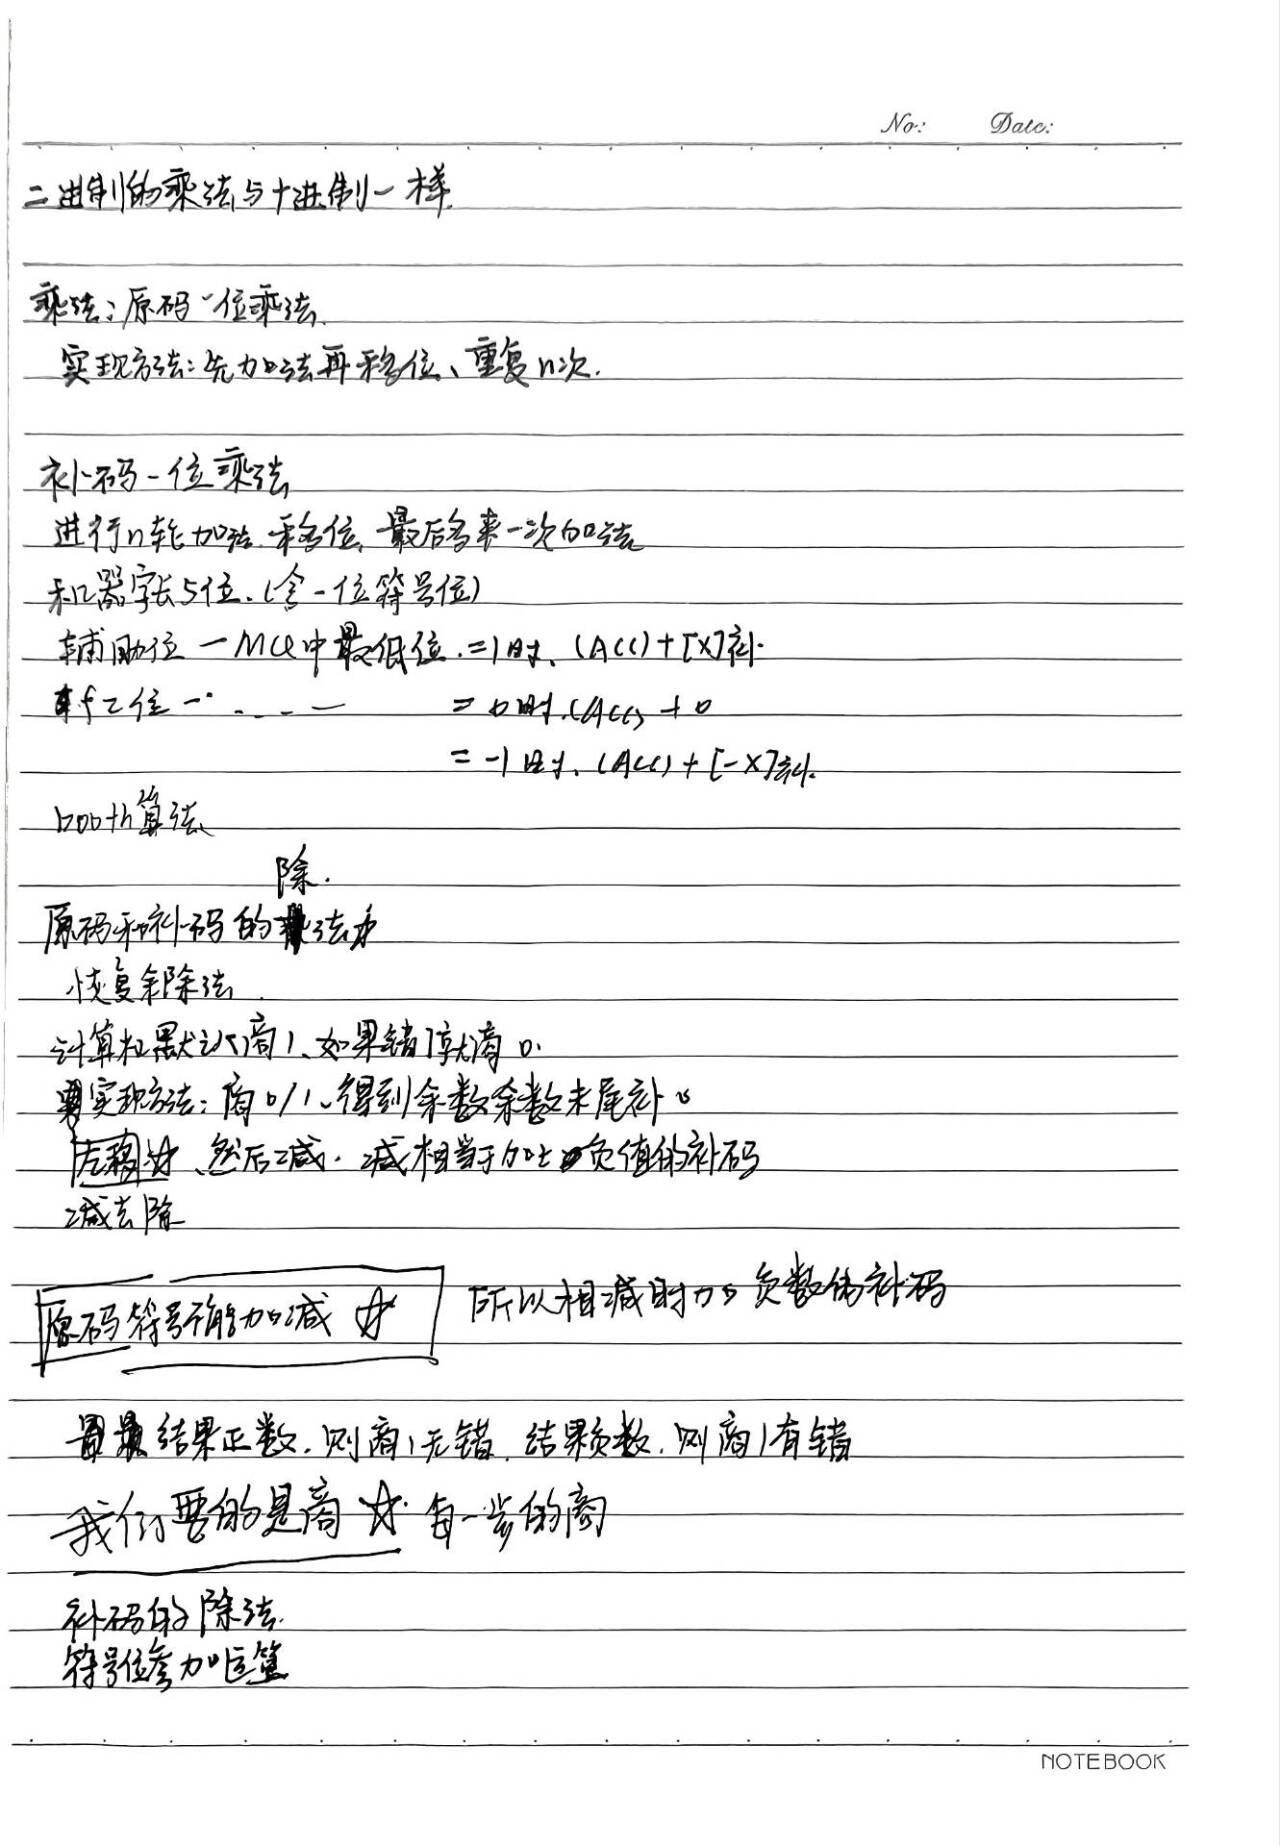 No: Date:
二进制的乘法与十进制一样
乘法:原码一位乘法
实现方法:先加法再移位、重复n次.
补码一位乘法
进行n轮加法.移位,最后多来一次加法
机器字长5位.(含一位符号位)
辅助位 — MQ中最低位.=1时、(ACC)+[X]补.
=0时.(ACC)+0
=-1时、(ACC)+[-X]补.
booth算法
除.
原码和补码的法
恢复余除法.
计算机默认商1、如果错了就商0.
实现方法:商0/1、得到余数余数末尾补0
左移☆、然后减.减相当于加上负值的补码
减去除
原码符号不能加减 ☆ 所以相减时加负数的补码
结果正数.则商1无错.结果负数.则商1有错
我们要的是商 ☆.每一步的商
补码的除法.
符号位参加运算
NOTEBOOK